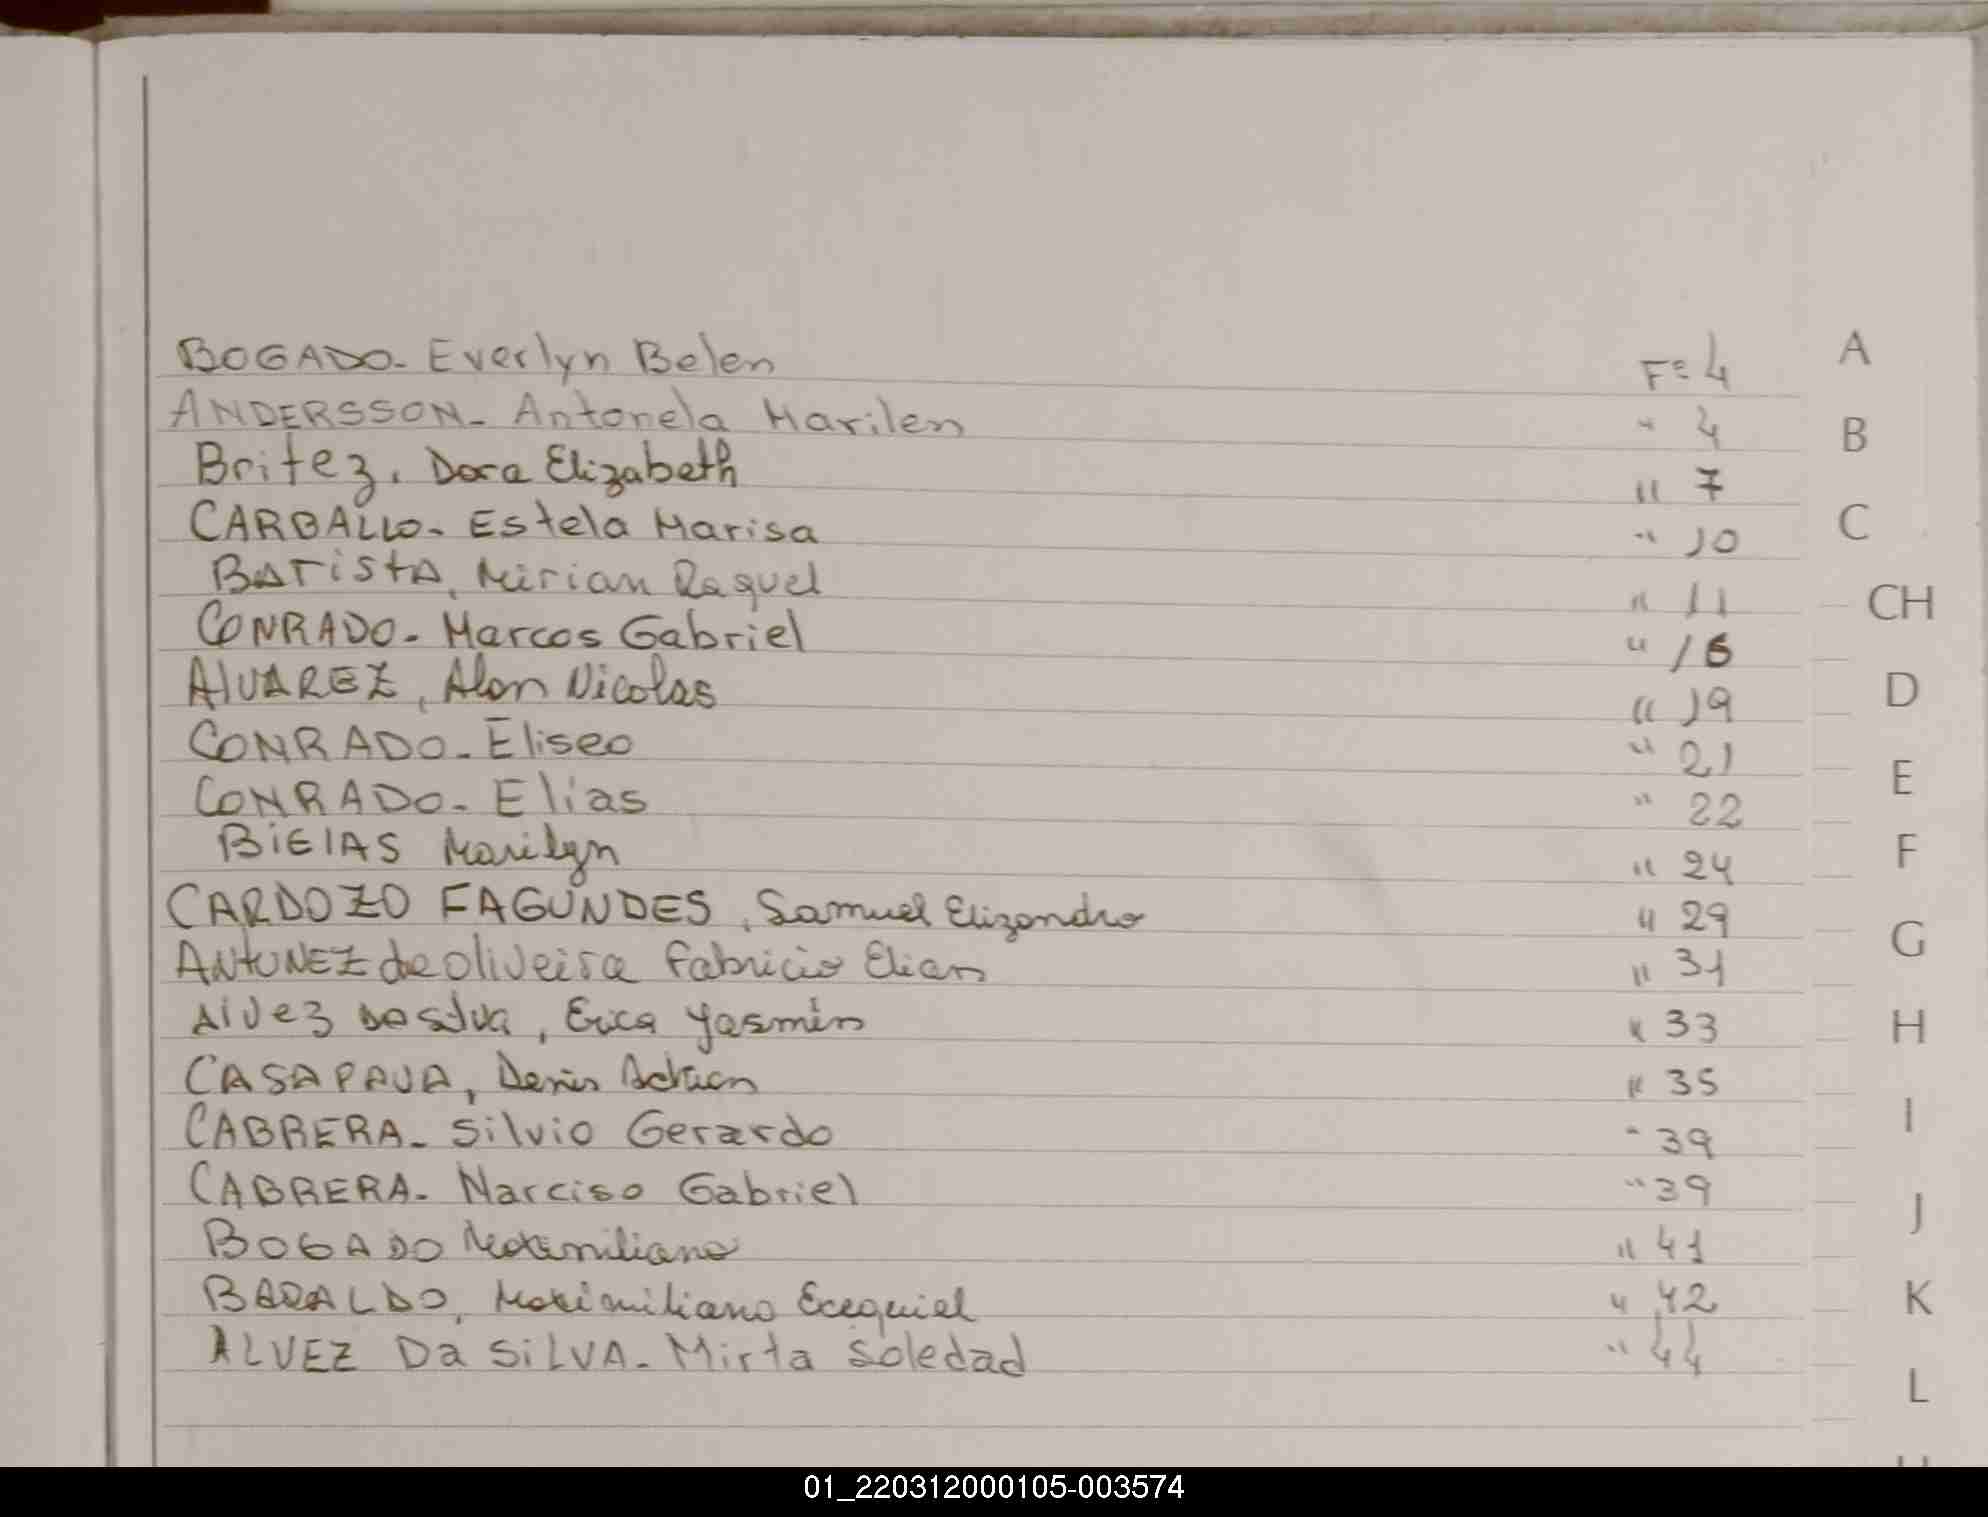 BOGADO- Everlyn Belen F= 4 A
ANDERSSON- Antonela Marilen " 4 B
Britez, Dora Elizabeth " 7
CARBALLO- Estela Marisa " 10 C
BATistA, Mirian Raquel " 11 CH
CONRADO- Marcos Gabriel " 16
AlVAREZ, Alan Nicolas " 19 D
CONRADO- Eliseo " 21
CONRADO- Elias " 22 E
BiElAS Marilyn " 24 F
CARDOZO FAGUNDES, Samuel Elizandro " 29
ANtUNEZ de oliveira Fabricio Elian " 31 G
Alvez Da silva, Erica Yasmin " 33 H
CASAPAVA, Denis Adrian " 35
CABRERA- Silvio Gerardo " 39 I
CABRERA- Narciso Gabriel " 39
BOGADO Maximiliano " 41 J
BARALDO, Maximiliano Ecequiel " 42 K
ALVEZ Da SiLVA- Mirta Soledad " 44
L
01_220312000105-003574